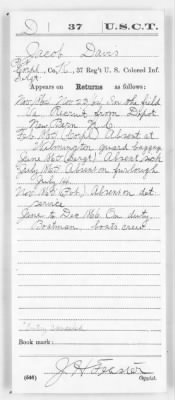 D 37 U.S.C.T.
Jacob Davis
Corpl, Co. K, 37 Reg't U. S. Colored Inf.
Appears on Returns as follows:
Nov. 1864 Nov 22 64 In the field
Va. Recruit from Depot
New Bern N.C.
Feb. 1865 (Corpl) Absent at
Wilmington guard baggage
June 1865 (Sergt) Absent sick
July 1865 Absent on furlough
July
Nov. 1865 (Pvt) Absent on det
service
June to Dec 1866 On duty
Boatman boats crew
Book mark:
J H
(546) Copyist.